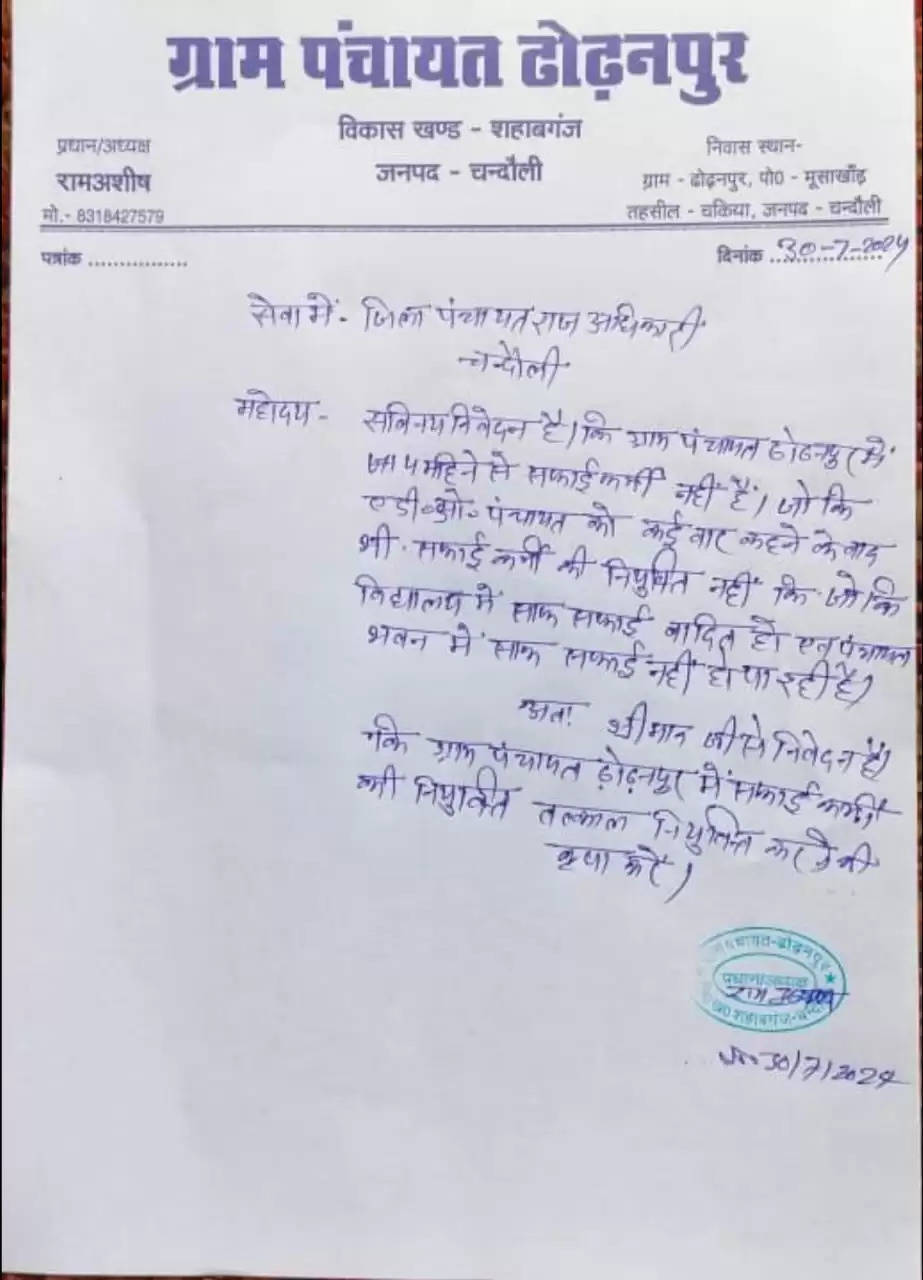 ग्राम पंचायत ढोढ़नपुर
विकास खण्ड - शहाबगंज
जनपद - चन्दौली
प्रधान/अध्यक्ष
रामअशीष
मो.- 8318427579
निवास स्थान-
ग्राम - ढोढ़नपुर, पो0 - मूसाखाँड़
तहसील - चकिया, जनपद - चन्दौली
पत्रांक ................
दिनांक 30-7-2024
सेवा में - जिला पंचायत राज अधिकारी
चन्दौली
महोदय -
सविनय निवेदन है। कि ग्राम पंचायत ढोढ़नपुर में
महिने से सफाई कर्मी नहीं हैं। जो कि
ए०डी०ओ० पंचायत को कई बार कहने के बाद
भी सफाई कर्मी की नियुक्ति नहीं कि जो कि
विद्यालय में साफ सफाई वादित हो एव पंचायत
भवन में साफ सफाई नहीं हो पा रही है।
अतः श्रीमान जी से निवेदन है।
कि ग्राम पंचायत ढ़ोढ़नपुर में सफाई कर्मी
की नियुक्ति तत्काल नियुक्ति करने की
कृपा करें।
पंचायत-ढोढ़नपुर
प्रधान/अध्यक्ष
शहाबगंज-चन्दौ
30/7/2024